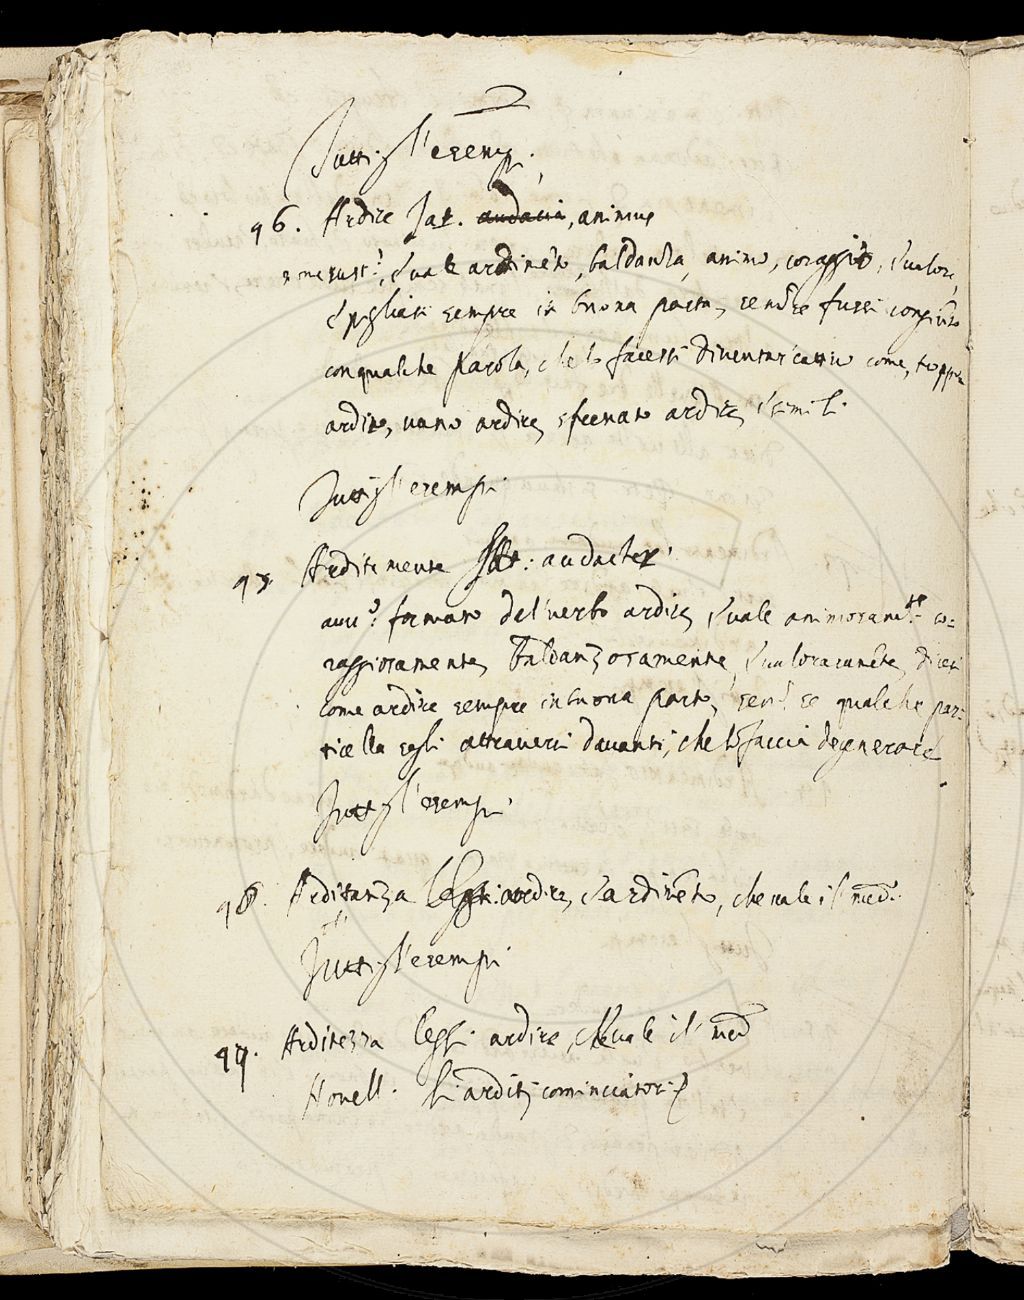 Tutti gl'esempi.
96. Ardire Lat. audacia, animus
nome sust.º, e vale ardimẽto, baldanza, animo, coraggio, e valore,
e pigliasi sempre in buona parte, se nõ se fussi congiũto
con qualche parola, che lo facessi diventar cattiuo come, troppo
ardire, uano ardire, sfrenato ardire, e simili.
Tutti gl'esempi
97. Arditamente Lat: audacter
auu.º formato del uerbo ardire, e uale animosam.te co=
raggiosamente, baldanzosamente, e ualorosamẽte, dicesi
come ardire sempre in buona parte, se nõ se qualche par=
ticella segli attraversi davanti, che lo faccia degenerare
Tutti gl'esempi
98. Arditanza leggi: ardire, e ardimẽto, che uale il med.º
Tutti gl'esempi
99. Arditezza leggi ardire, che uale il med
Novell. Li arditi cominciatori